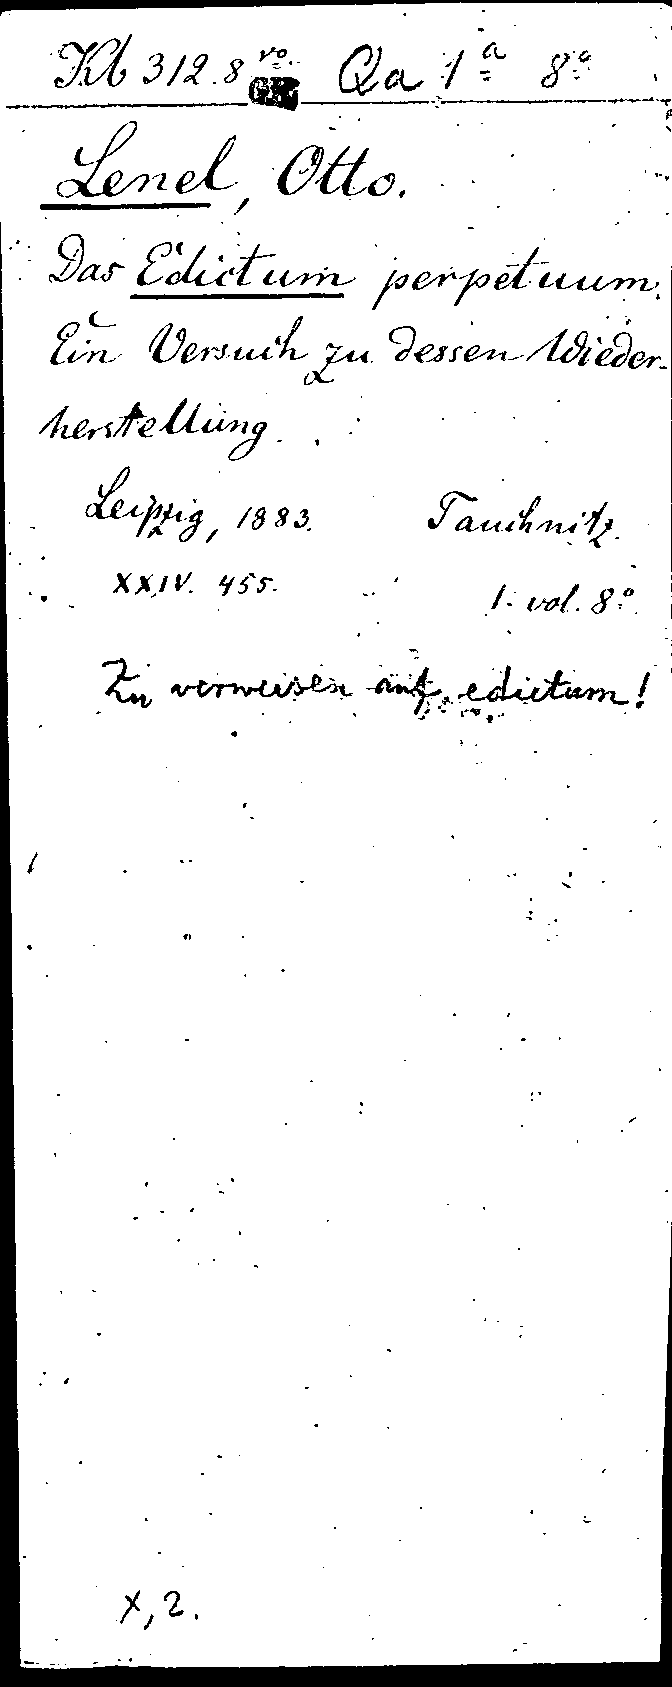 Kb 312. 8vo. Qa 1a 8o
Lenel, Otto.
Das Edictum perpetuum.
Ein Versuch zu dessen Wieder-
herstellung.
Leipzig, 1883. Tauchnitz.
XXIV. 455.
1. vol. 8o.
Zu verweisen auf edictum!
X, 2.